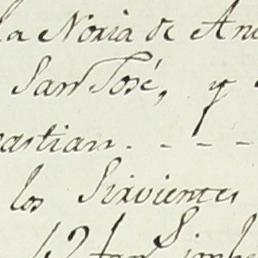 la Noria de An
San José, y
astian - - - -
los Sirvientes